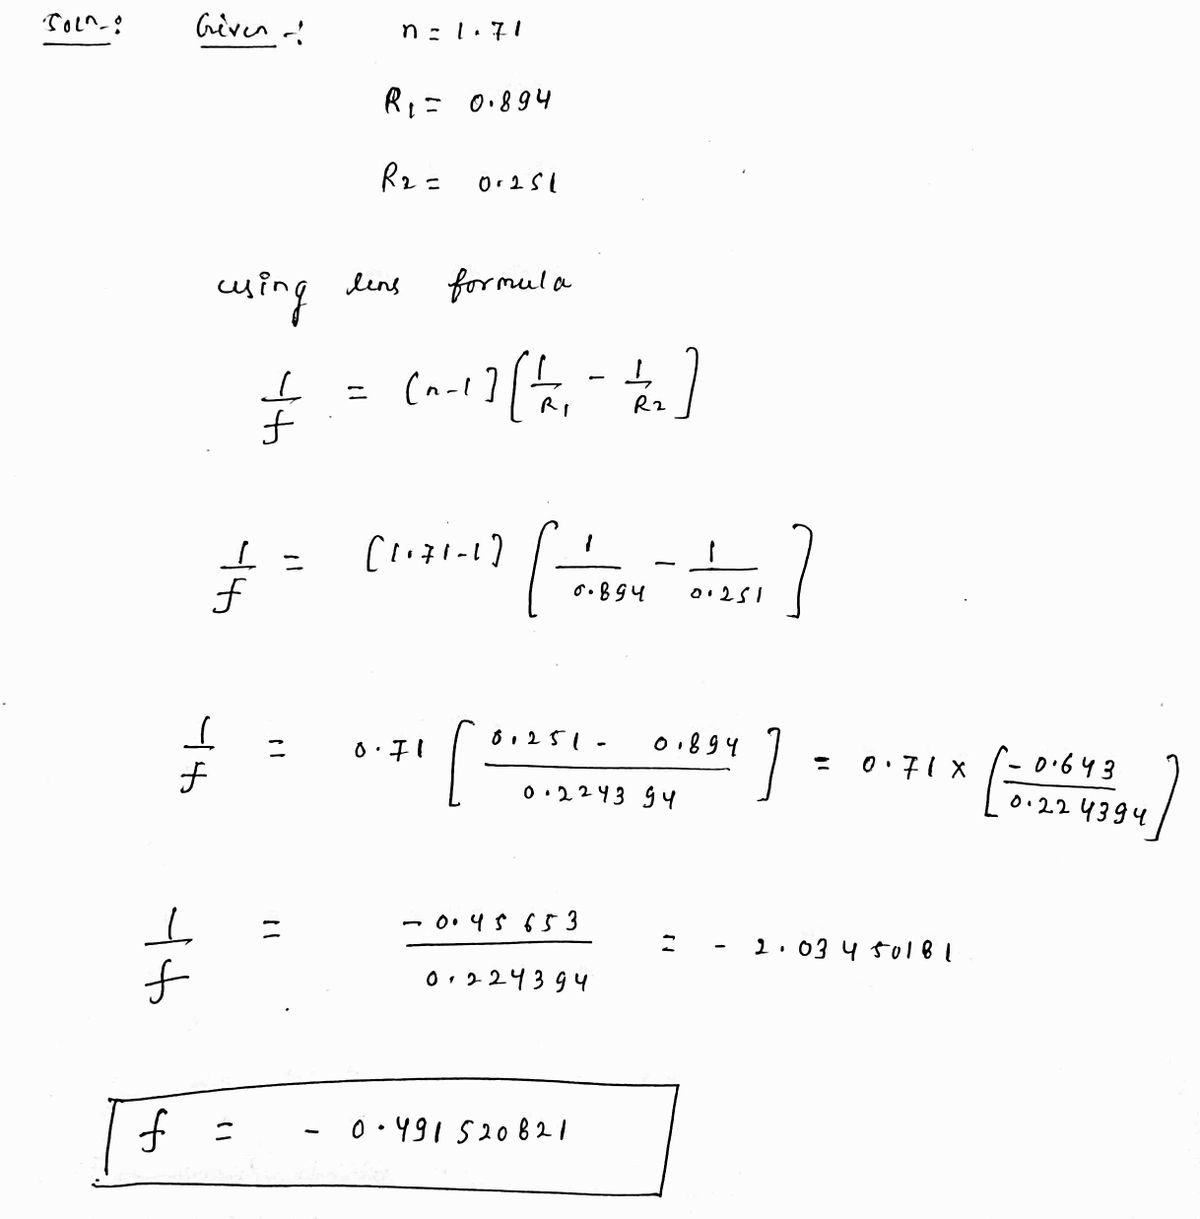 Soln-: Given -: n = 1.71
R1 = 0.894
R2 = 0.251
using lens formula
1/f = (n-1] [1/R1 - 1/R2]
1/f = (1.71-1] [1/0.894 - 1/0.251]
1/f = 0.71 [0.251 - 0.894/0.224394] = 0.71 x [-0.643/0.224394]
1/f = -0.45653/0.224394 = -2.03450181
f = -0.491520821